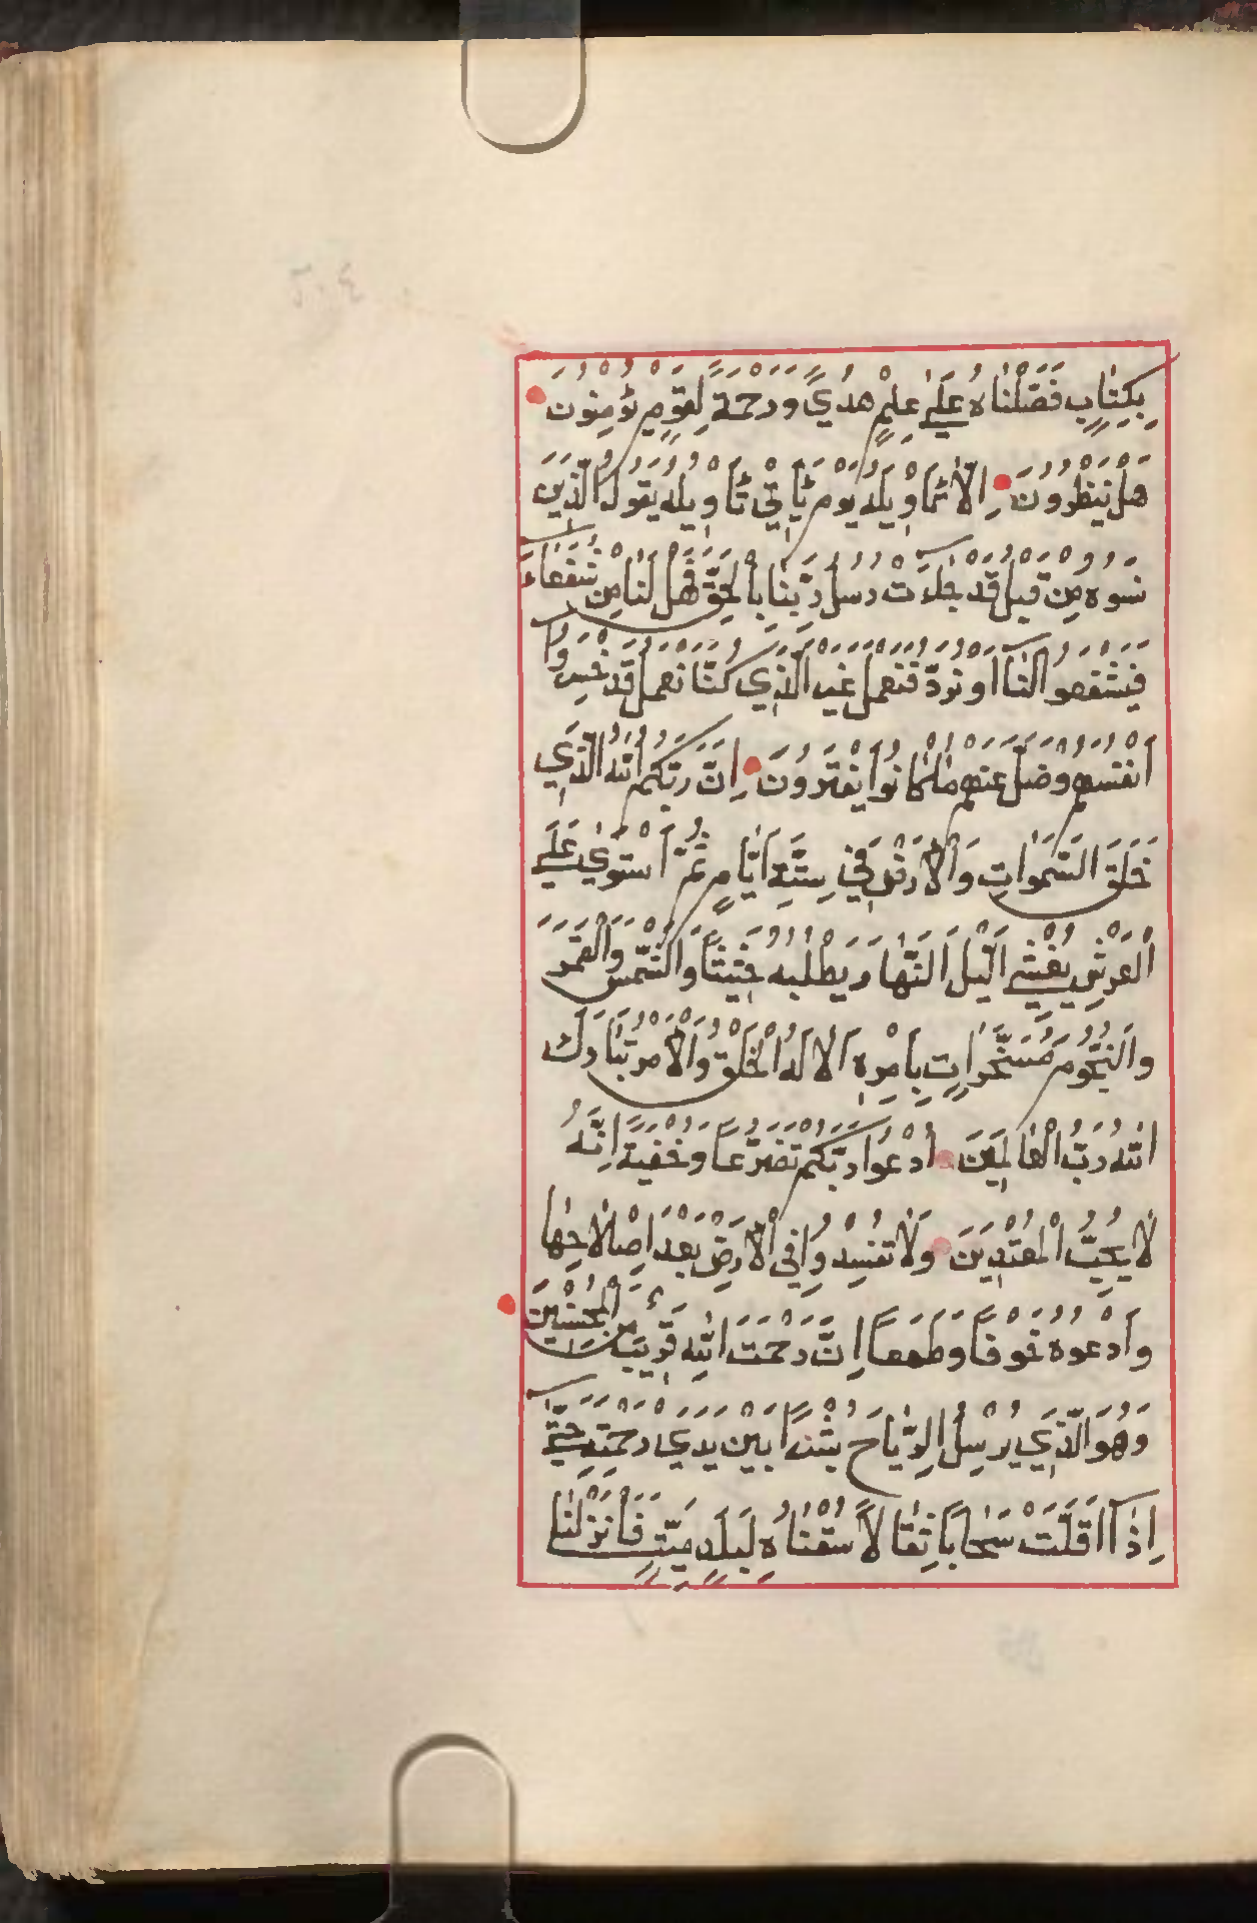 بِكِتَابٍ فَصَّلْنَاهُ عَلَىٰ عِلْمٍ هُدًي وَرَحْمَةً لِقَوْمٍ يُؤْمِنُونَ
هَلْ يَنْظُرُونَ اِلَّا تَأْوِيلَهُ يَوْمَ يَأْتِي تَأْوِيلُهُ يَقُولُ الَّذِينَ
نَسُوهُ مِنْ قَبْلُ قَدْ جَاءَتْ رُسُلُ رَبِّنَا بِالْحَقِّ فَهَلْ لَنَا مِنْ شُفَعَاءَ
فَيَشْفَعُوا لَنَا اَوْ نُرَدُّ فَنَعْمَلَ غَيْرَ الَّذِي كُنَّا نَعْمَلُ قَدْ خَسِرُوا
اَنْفُسَهُمْ وَضَلَّ عَنْهُمْ مَا كَانُوا يَفْتَرُونَ اِنَّ رَبَّكُمُ اللهُ الَّذِي
خَلَقَ السَّمٰوَاتِ وَالْاَرْضَ فِي سِتَّةِ اَيَّامٍ ثُمَّ اسْتَوٰي عَلَى
الْعَرْشِ يُغْشِي الَّيْلَ النَّهَارَ يَطْلُبُهُ حَثِيثًا وَالشَّمْسَ وَالْقَمَرَ
وَالنُّجُومَ مُسَخَّرَاتٍ بِاَمْرِهِ اَلَا لَهُ الْخَلْقُ وَالْاَمْرُ تَبَارَكَ
اللهُ رَبُّ الْعَالَمِينَ اُدْعُوا رَبَّكُمْ تَضَرُّعًا وَخُفْيَةً اِنَّهُ
لَا يُحِبُّ الْمُعْتَدِينَ وَلَا تُفْسِدُوا فِي الْاَرْضِ بَعْدَ اِصْلَاحِهَا
وَادْعُوهُ خَوْفًا وَطَمَعًا اِنَّ رَحْمَتَ اللهِ قَرِيبٌ مِنَ الْمُحْسِنِينَ
وَهُوَ الَّذِي يُرْسِلُ الرِّيَاحَ بُشْرًا بَيْنَ يَدَيْ رَحْمَتِهِ حَتَّى
اِذَا اَقَلَّتْ سَحَابًا ثِقَالًا سُقْنَاهُ لِبَلَدٍ مَيِّتٍ فَاَنْزَلْنَا